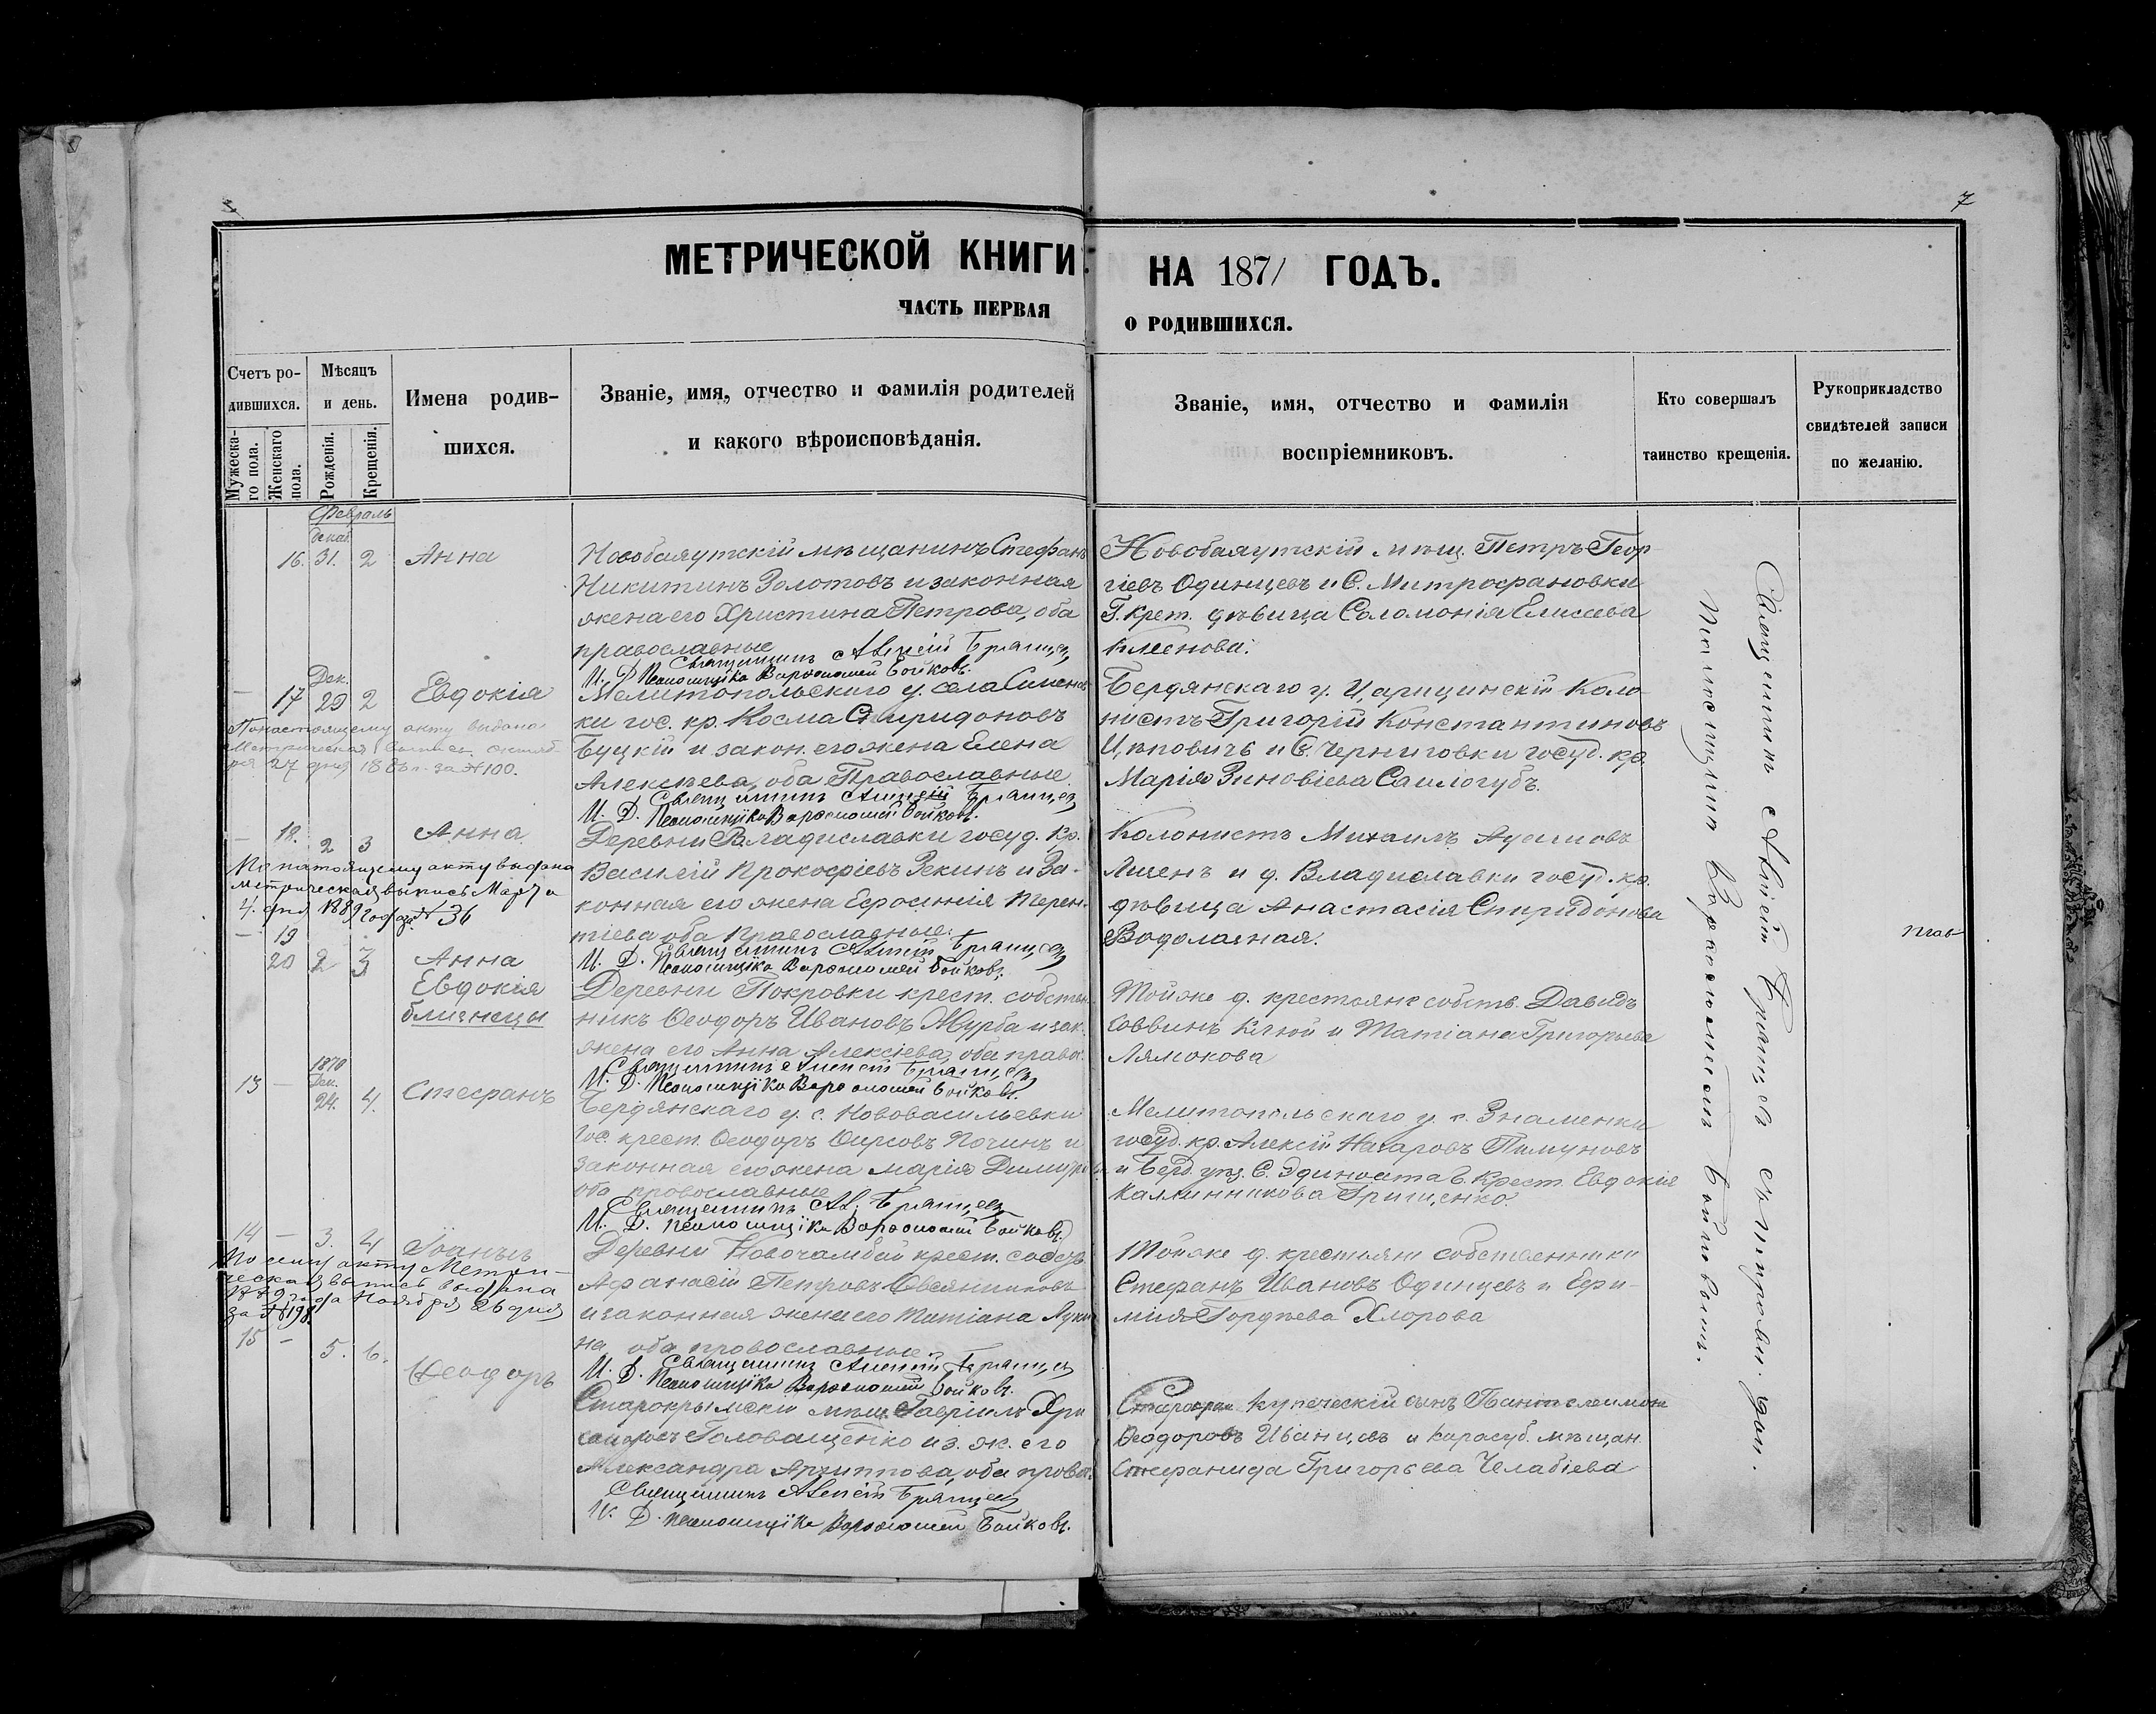 7
МЕТРИЧЕСКОЙ КНИГИ НА 1871 ГОДЪ.
ЧАСТЬ ПЕРВАЯ О РОДИВШИХСЯ.
Счетъ ро-
дившихся.
Мужеска-
го пола.
Женскаго
пола.
Мѣсяцъ
и день.
Рожденія.
Крещенія.
Имена родив-
шихся.
Званіе, имя, отчество и фамилія родителей
и какого вѣроисповѣданія.
Званіе, имя, отчество и фамилія
воспріемниковъ.
Кто совершалъ
таинство крещенія.
Рукоприкладство
свидѣтелей записи
по желанію.
Февраль
16. 31. 2 Анна
Мѣщанинъ Стефанъ
Никитинъ Золотовъ и законная
жена его Христина Петрова, оба
православные
Священникъ Алексій Бранцев
И. Д. Псаломщика Варфоломей Бойковъ.
мѣщ. Петръ Геор-
гіевъ Одинцевъ и С. Митрофановки
Г. крест. дѣвица Соломонія Елисеева
Дек.
17 29 2 Евдокія
По настоящему акту выдана
Метрическая выпись
27 дня за № 100.
Мелитопольскаго у. села Семенов-
ки гос. кр. Косма Спиридоновъ
Буцкій и закон. его жена Елена
Алексѣева, оба Православные
Священникъ Алексій Бранцев
И. Д. Псаломщика Варфоломей Бойковъ.
Бердянскаго у. Царицинскій Коло-
нистъ Григорій Константиновъ
и С. Черниговки госуд. кр.
Марія Зиновіева Самогубъ.
18. 2 3 Анна
По настоящему акту выдана
метрическая выпись Марта
4. дня 1889 года № 36
Деревни Владиславки госуд. кр.
Василій Прокофіевъ Зекинъ и За-
конная его жена Ефросинія Терен-
тіева оба Православные.
Священникъ Алексій Бранцев
И. Д. Псаломщика Варфоломей Бойковъ.
Колонистъ Михаилъ
и д. Владиславки госуд. кр.
дѣвица Анастасія Спиридонова
Водолазная.
19
20 2 3 Анна
Евдокія
близнецы
Деревни Покровки крест. собствен-
никъ Ѳеодоръ Ивановъ Журба и зак.
жена его Анна Алексіева, оба правос.
Священникъ Алексій Бранцев
И. Д. Псаломщика Варфоломей Бойковъ.
Тойже д. крестьяне собств. Давидъ
Саввинъ Клюй и Татіана Григорьева
Лямокова
1870
Дек.
13 – 24. 4. Стефанъ
Бердянскаго у. с. Нововасильевки
Гос. крест. Ѳеодоръ Ѳирсовъ Починъ и
законная его жена Марія Димитр
оба православные
Священникъ Ал. Бранцев
И. Д. Псаломщика Варфоломей Бойковъ.
Мелитопольскаго у. с. Знаменки
госуд. кр. Алексій Назаровъ Пимуновъ
и Берд. у. С. Крест. Евдокія
Каллинникова Грищенко.
14 – 3. 4 Іоаннъ
По сему акту Метри-
ческая выпись выдана
года Ноября дня
за № 198
Деревни Новочамбай крест. собств.
Афанасій Петровъ Овсянниковъ
и законная жена его Татіана Луки-
на оба православные.
Священникъ Алексій Бранцев
И. Д. Псаломщика Варфоломей Бойковъ.
Тойже д. крестьяне собственники
Стефанъ Ивановъ Одинцевъ и Ефи-
мія Гордѣева Хлорова
15 – 5. 6. Ѳеодоръ
Старокрымскій мѣщ. Гавріилъ Хри
Головащенко и з. ж. его
Александра Архиппова, оба правос.
Священникъ Алексій Бранцев
И. Д. Псаломщика Варфоломей Бойковъ.
купеческій сынъ Пантелеимонъ
Ѳеодоровъ Иванцовъ и Карасуб. мѣщан.
Стефанида Григорьева Челабіева
Священникъ Алексій Бранцев съ
Псаломщикомъ Варфоломеемъ Бойковымъ.